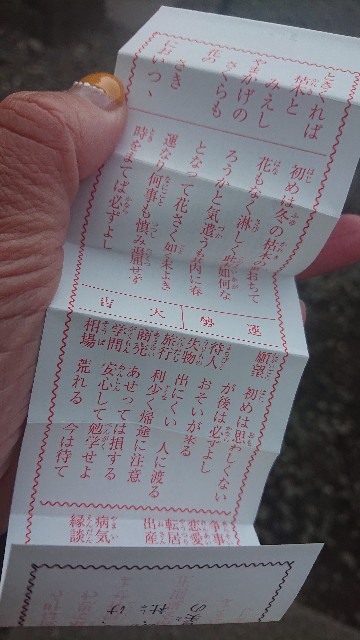 ときくれば
枯木と
みえし
やまかげの
さくらも
花の
さき
においつゝ
初めは冬の枯木の落ちて
花もなく淋しく此如何な
ろうかと気遣うも内に春
となって花さく如く末よき
運なり何事も慎み退屈せず
時をまてば必ずよし
運勢
大吉
願望 初めは思わしくない
が後は必ずよし
待人 おそいが来る
失物 出にくい 人に渡る
旅行 利少く帰途に注意
商売 あせっては損する
学問 安心して勉学せよ
相場 荒れる 今は待て
争事
恋愛
転居
出産
病気
縁談